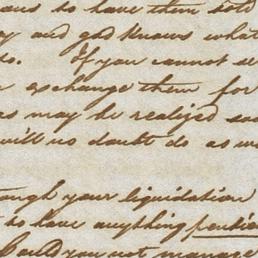 to have them sold
and god knows what
If you cannot
exchange them for
may be realized
will no doubt do as
your liquidation
to have anything
Could you not manage